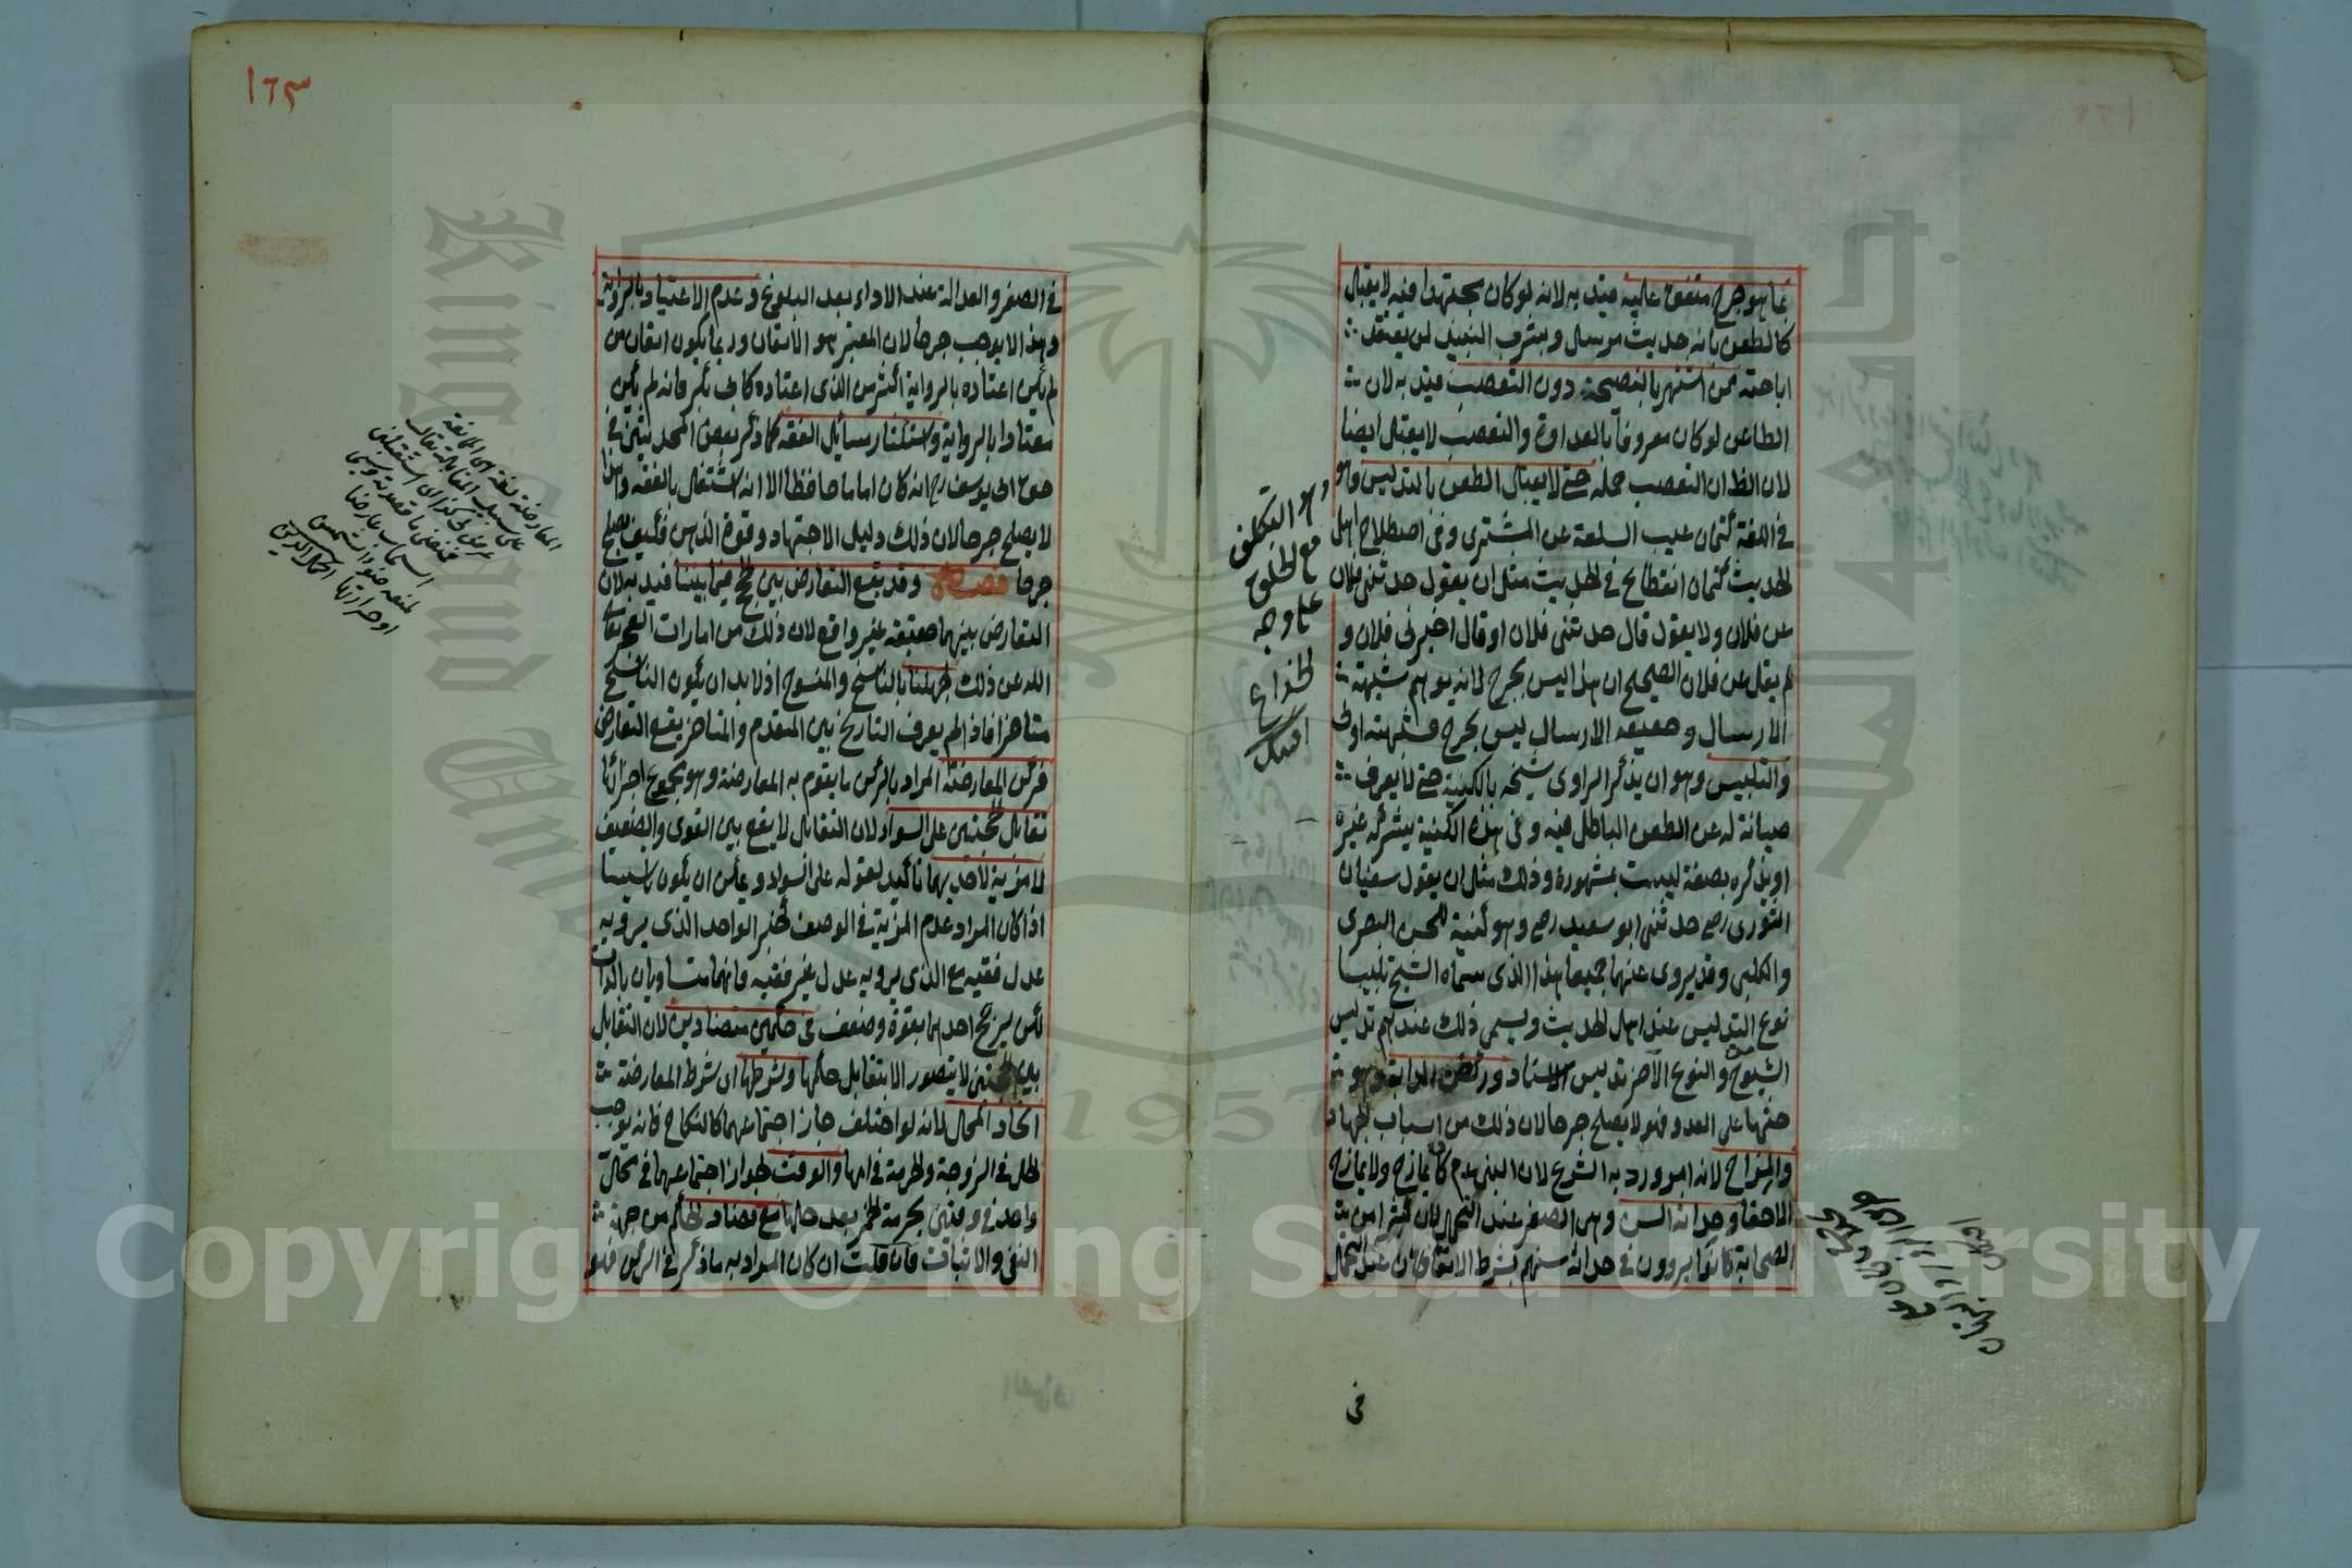 بما هو جرح متفق عليه قيد به لانه لو كان مجتهدا فيه لا يقبل
كالطعن بانه حديث مرسل وبشرب النبيذ لمن يعتقد
اباحته ممن اشتهر بالنصيحة دون التعصب قيد به لان
الطاعن لو كان معروفا بالعداوة والتعصب لا يقبل ايضا
لان الظ ان التعصب حمله حتى لا يقبل الطعن بالتدليس وهو
في اللغة كتمان عيب السلعة عن المشترى وفى اصطلاح اهل
الحديث كتمان انقطاع في الحديث مثل ان يقول حدثنى فلان
عن فلان ولا يقول قال حدثنى فلان او قال اخبرنى فلان و
لم يقل عن فلان الصحيح ان هذا ليس بجرح لانه يوهم شبهة
الارسال وحقيقة الارسال ليس بجرح فشبهته اولى
والتلبيس وهو ان يذكر الراوى شيخه بالكنية حتى لا يعرف
صيانة له عن الطعن الباطل فيه وفى هذه الكنية يشركه غيره
او يذكره بصفة ليست بمشهورة وذلك مثل ان يقول سفيان
الثورى رح حدثنى ابو سعيد رح وهو كنية للحسن البصرى
والكلبى وقد يروى عنهما جميعا هذا الذى سماه الشيخ تلبيسا
نوع التدليس عند اهل الحديث ويسمى ذلك عندهم تدليس
الشيوخ والنوع الآخر تدليس الاسناد وركض الدابة وهو
حثها على العدو فهو لا يصلح جرحا لان ذلك من اسباب الجهاد
والمزاح لانه امر ورد به الشرع لان النبى عدم كان يمازح ولا يمازح
الاحقا وحداثة السن وهى الصغر عند التحمل لان كثيرا من
الصحابة كانوا يروون فى حداثة سنهم بشرط الاتقان عند التحمل
فى
وهو التكلف
مع الخلق
على وجه
الخداع
١٦٣
في الصغر والعدالة عند الاداء بعد البلوغ وعدم الاعتياد بالرواية
وهذا لا يوجب جرحا لان المعتبر هو الاتقان وربما يكون اتقان من
لم يكن اعتاده بالرواية اكثر من الذى اعتاده كابى بكر فانه لم يكن
معتادا بالرواية واستكثار مسائل الفقه كما ذكر بعض المحدثين في
حق ابى يوسف رح انه كان اماما حافظا الا انه اشتغل بالفقه وهذا
لا يصلح جرحا لان ذلك دليل الاجتهاد وقوة الذهن فكيف يصلح
جرحا فصل وقد يقع التعارض بين الحجج فيما بيننا قيد به لان
التعارض بينهما حقيقة غير واقع لان ذلك من امارات العجز تعالى
الله عن ذلك لجهلنا بالناسخ والمنسوخ اذ لا بد ان يكون الناسخ
متاخرا فاذا لم يعرف التاريخ بين المتقدم والمتاخر يقع التعارض
فركن المعارضة المراد بالركن ما يقوم به المعارضة وهو مجموع اجزائها
تقابل الحجتين على السواد لان التقابل لا يقع بين القوى والضعيف
لا مزية لاحديهما تاكيد لقوله على السواد ويمكن ان يكون تاسيسا
اذا كان المراد عدم المزية في الوصف كخبر الواحد الذى يرويه
عدل فقيه مع الذى يرويه عدل غير فقيه فانهما متساويان بالذات
لكن يرجح احدهما بقوة وضعف فى حكمين متضادين لان التقابل
بين الحجتين لا يتصور الا بتقابل حكمها وشرطها ان شرط المعارضة
اتحاد المحل لانه لو اختلف جاز اجتماعهما كالنكاح فانه يوجب
الحل فى الزوجة والحرمة فى امها والوقت لجواز اجتماعهما فى محل
واحد فى وقتين كحرمة الخمر بعد حلها مع تضاد الحكم من جهة
النفى والاثبات فان قلت ان كان المراد به ما ذكر فى الركن فهو
المعارضة لغة هى الممانعة
على سبيل المقابلة يقال
عرض لى كذا اى استقبلنى
Copyright © King Saud University
1957